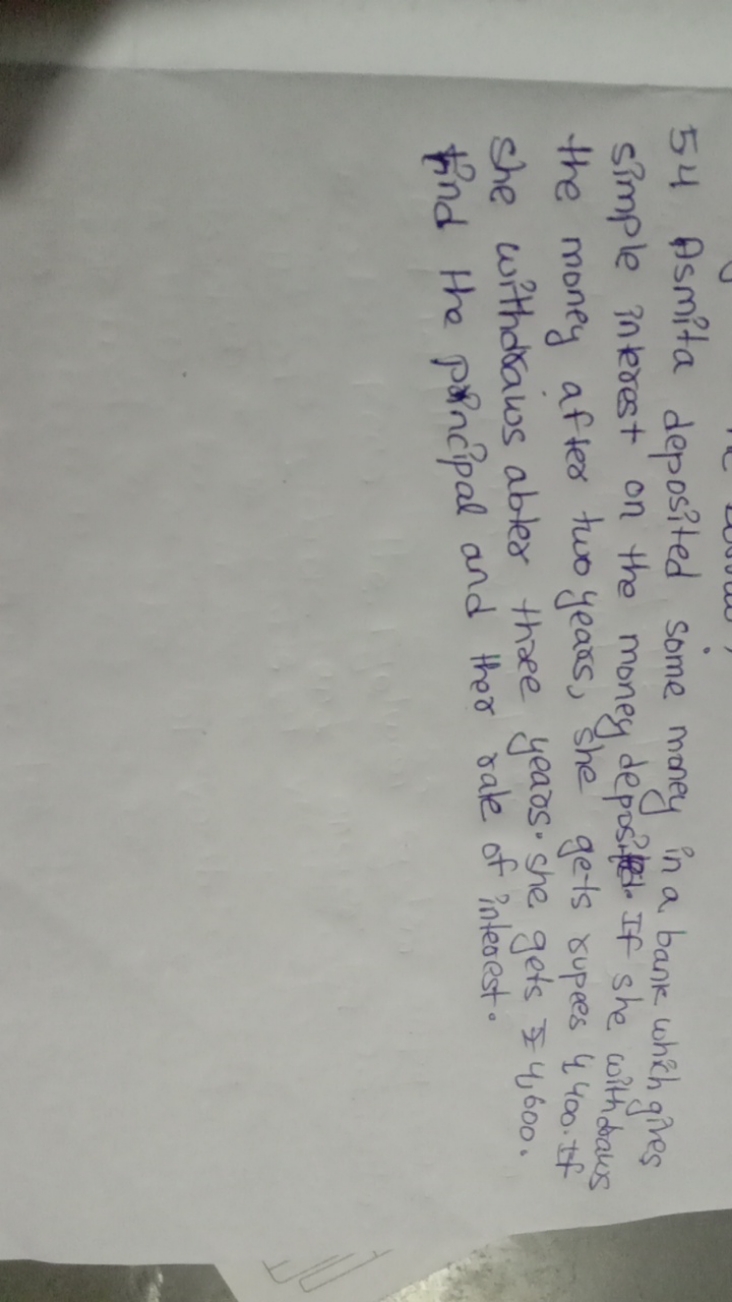 54 Asmita deposited some money in a bank which gives
simple interest on the money deposited. If she withdraws
the money after two years, she gets rupees 4400. If
she withdraws abter three years. she gets ₹ 4,600.
Find the principal and ther rate of interest.